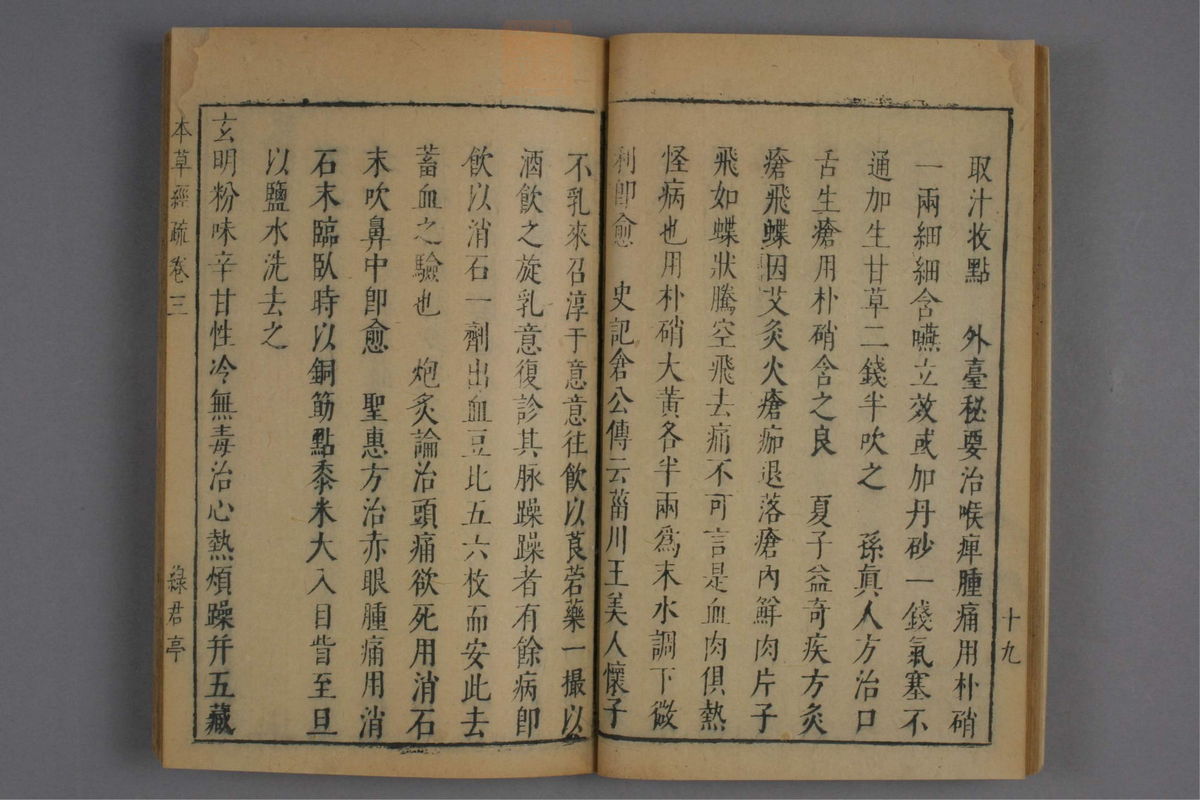 取汁收點　外臺秘要治喉痺腫痛用朴硝
一兩細細含嚥立效或加丹砂一錢氣塞不
通加生甘草二錢半吹之　孫眞人方治口
舌生瘡用朴硝含之良　夏子益奇疾方灸
瘡飛蝶因艾灸火瘡痂退落瘡內鮮肉片子
飛如蝶狀騰空飛去痛不可言是血肉俱熱
怪病也用朴硝大黃各半兩爲末水調下微
利卽愈　史記倉公傳云菑川王美人懷子
十九
不乳來召淳于意意往飲以莨菪藥一撮以
酒飲之旋乳意復診其脉躁躁者有餘病卽
飲以消石一劑出血豆比五六枚而安此去
蓄血之驗也　炮炙論治頭痛欲死用消石
末吹鼻中卽愈　聖惠方治赤眼腫痛用消
石末臨臥時以銅筯點黍米大入目眥至旦
以鹽水洗去之
玄明粉味辛甘性冷無毒治心熱煩躁幷五藏
本草經疏卷三
綠君亭